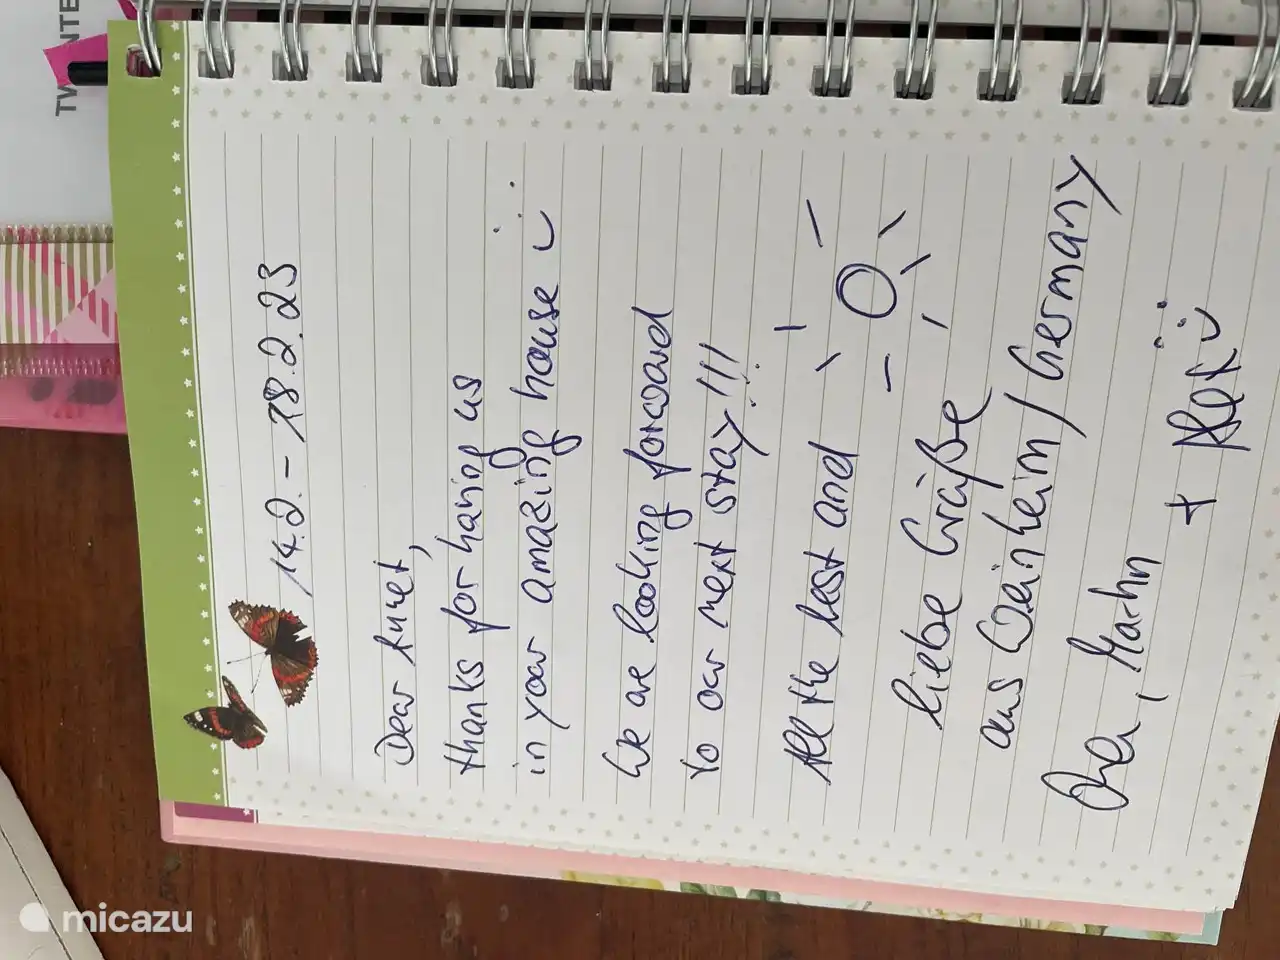 14.2. - 18.2.23
Dear
thanks for having us
in your amazing house
We are looking forward
to our next stay!!!
All the best and
liebe Grüße
aus Weinheim / Germany
+ Alex
micazu